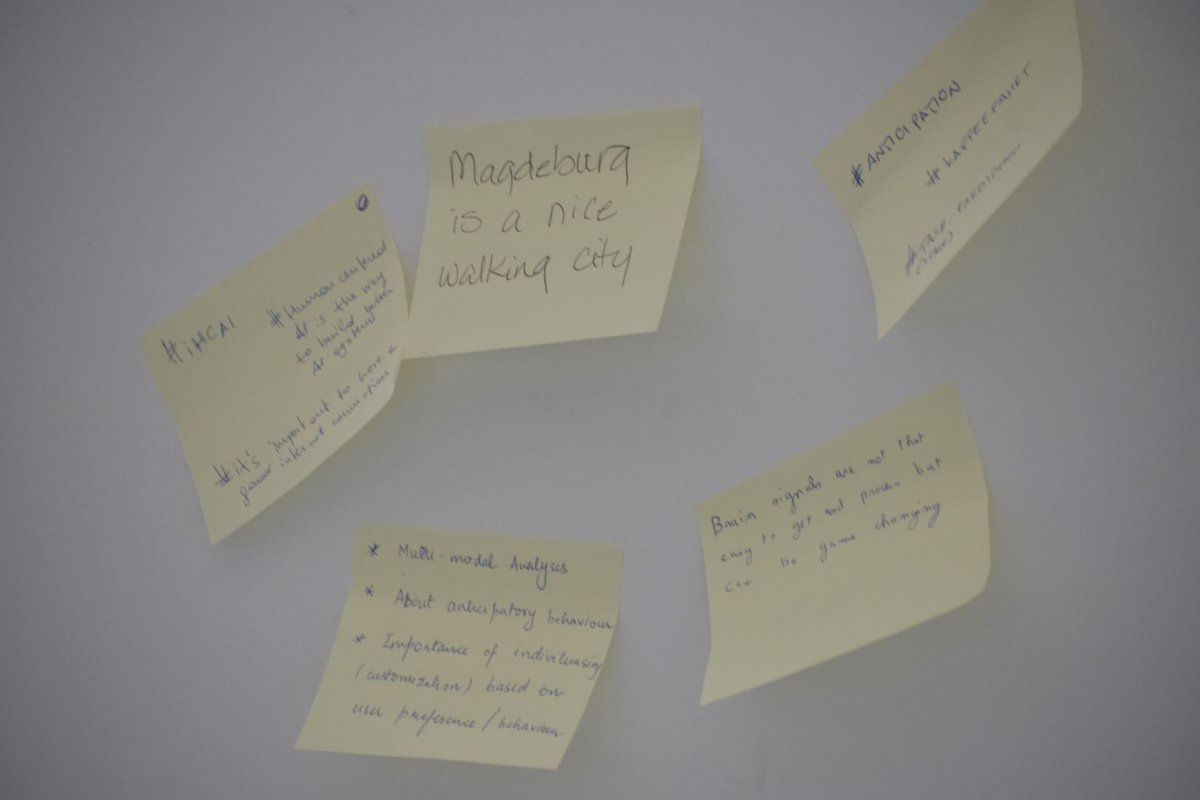 #iHCAI
#Human centered
AI is the way
to build better
AI systems
#it's important to have a
good internet connection
Magdeburg
is a nice
walking city
#ANTICIPATION
#KAFFEEFAHRT
#TASK
* Multi-modal Analyses
* About anticipatory behaviour
* Importance of
(customization) based on
user preference/behaviour
Brain signals are not that
easy to get and process but
can be game changing